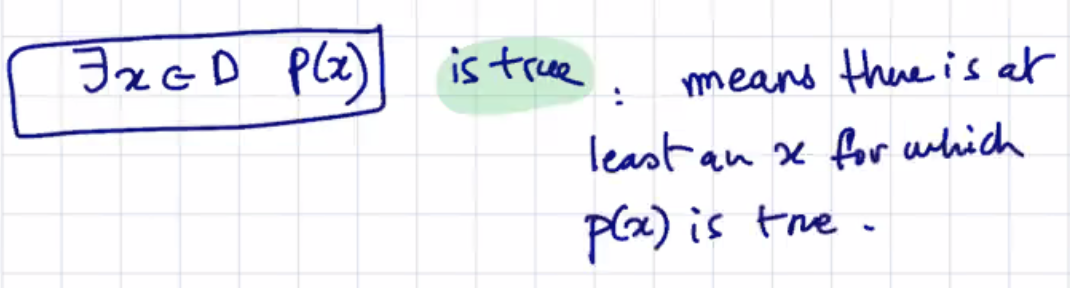 ∃x∈D P(x) is true : means there is at
least an x for which
p(x) is true.